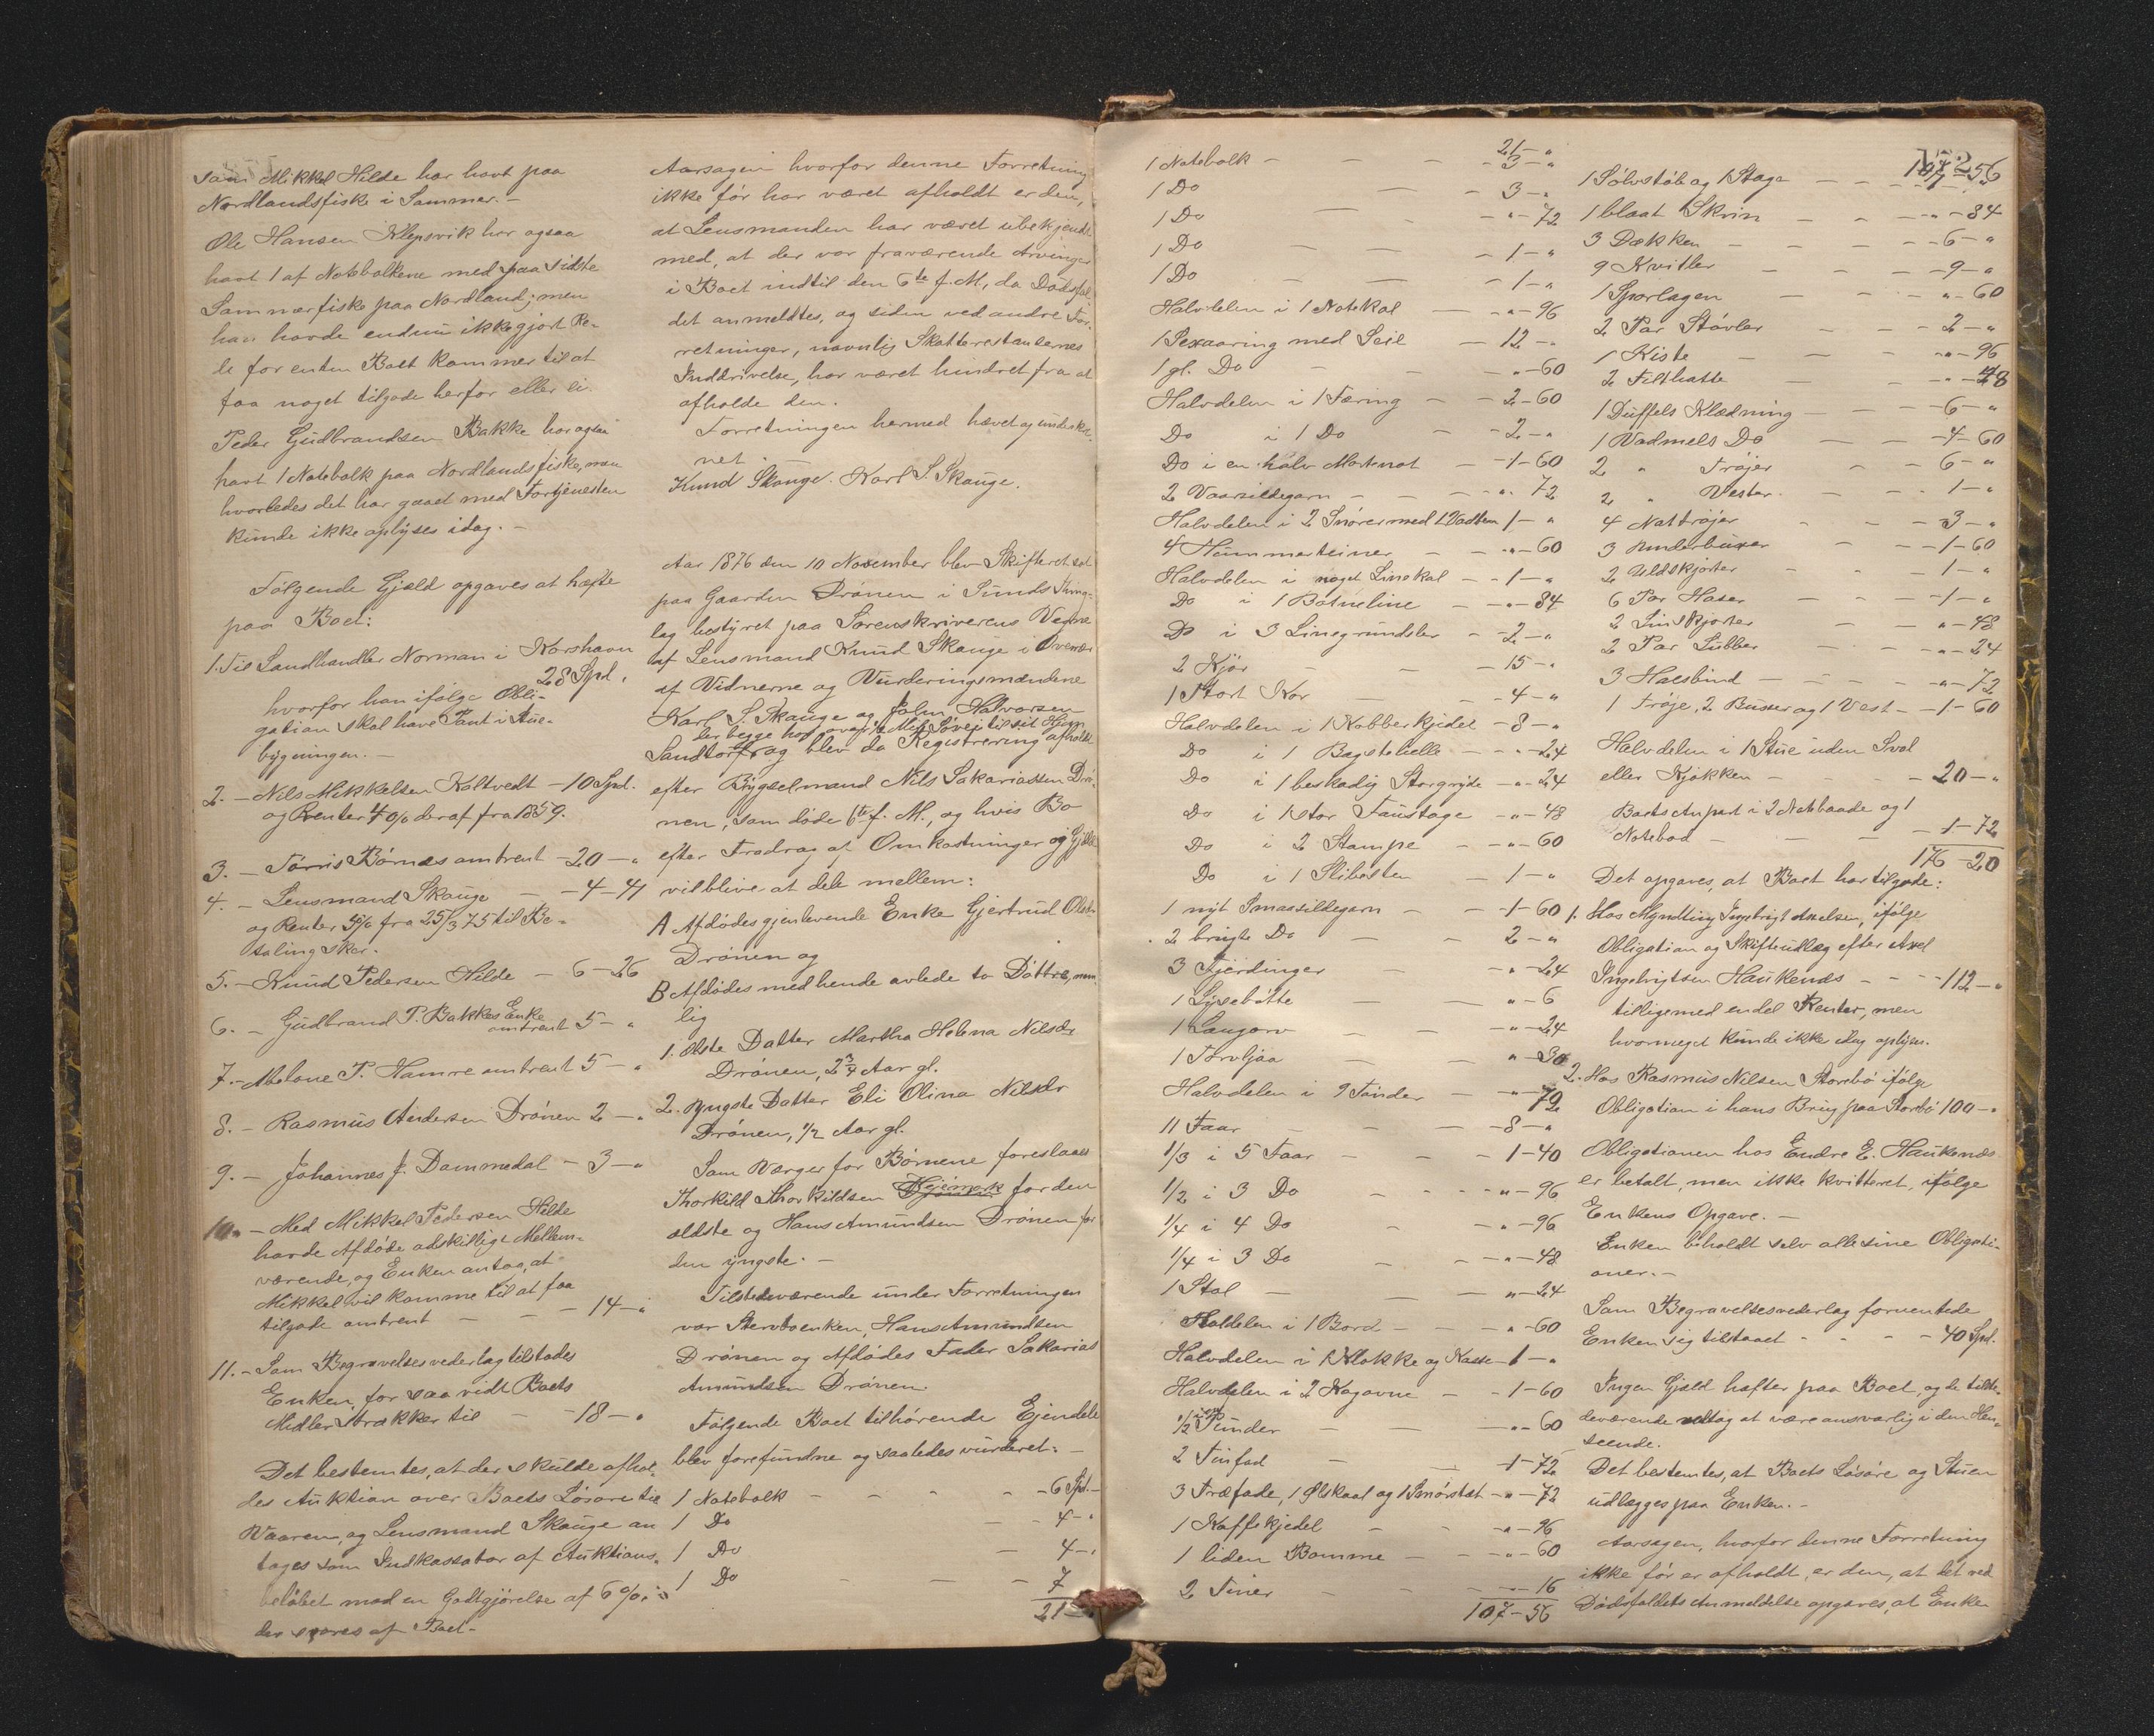 som Mikkel Hilde har havt paa
Nordlandsfiske i Sommer. -
Ole Hansen Klepsvik har ogsaa
havt 1 af Notebolkene med paa sidste
Sommerfiske paa Nordland; men
han havde endnu ikke gjort Re-
de for enten Boet kommer til at
faa noget tilgode herfor eller ei.
Peder Gudbrandsen Bakke har ogsaa
havt 1 Notebolk paa Nordlandsfiske, men
hvorledes det har gaaet med Fortjenesten
kunde ikke oplyses idag. -
Følgende Gjæld opgaves at hæfte
paa Boet:
1. Til Landhandler Norman i Korshavn
28 Spd.
hvorfor han ifølge Obli-
gation skal have Pant i Stue-
bygningen. -
2. - Nils Mikkelsen Koltvedt - 10 Spd.
og Renter 4 % deraf fra 1859.
3. - Tørris Børnæs omtrent - 20 - "
4. - Lensmand Skauge - - 4 - 41
og Renter 5% fra 25/3 75 til Be-
taling sker.
5. - Knud Pedersen Hilde - 6 - 26
6. - Gudbrand P. Bakkes Enke
omtrent 5 - "
7. - Abelone P. Hamre omtrent 5 - "
8. - Rasmus Andersen Drönen 2 - "
9. - Johannes J. Dommedal - 3 - "
10. - Med Mikkel Pedersen Hilde
havde Afdøde adskilligt Mellem-
værende, og Enken antog, at
Mikkel vil komme til at faa
tilgode omtrent - - 14 - "
11. - Som Begravelsesvederlag tilstodes
Enken, for saavidt Boets
Midler strækker til - - 18 - "
Det bestemtes, at der skulde afhol-
des Auktion over Boets Løsøre til
Vaaren, og Lensmand Skauge an
toges som Indkassator af Auktions-
beløbet mod en Godtgjørelse af 6 %,
der svares af Boet. -
Aarsagen hvorfor denne Forretning
ikke før har været afholdt er den,
at Lensmanden har været ubekjendt
med, at der var fraværende Arvinger
i Boet indtil den 6te f. M., da Dødsfal
det anmeldtes, og siden ved andre For-
retninger, navnlig Skatterestancernes
Inddrivelse, har været hindret fra at
afholde den.
Forretningen hermed hævet og underskre-
vet.
Knud Skauge. Karl S. Skauge.
Aar 1876 den 10 November blev Skifteret sat
paa Gaarden Drönen i Sunds Thing-
lag bestyret paa Sorenskriverens Vegne
af Lensmand Knud Skauge i Overvær
af Vidnerne og Vurderingsmændene
Karl S. Skauge og John Halvorsen
der begge har over 1/2 Mil Søvei til sit Hjem
Sandtorf og blev da Registrering afholdt
efter Bygselmand Nils Sakariassen Drö-
nen, som døde 6te f. M., og hvis Bo
efter Fradrag af Omkostninger og Gjæld
vil blive at dele mellem:
A Afdødes gjenlevende Enke Gjertrud Olsdr
Drönen og
B Afdødes med hende avlede to Døttre, nem-
lig
1. Ælste Datter Martha Helena Nilsdr
Drönen, 2 3/4 Aar gl.
2. Yngste Datter Eli Olina Nilsdr
Drönen, 1/2 Aar gl.
Som Værger for Børnene foreslaaes
Thorkild Thorkildsen for den
ældste og Hans Amundsen Drönen for
den yngste. -
Tilstedeværende under Forretningen
var Stervboenken, Hans Amundsen
Drönen og Afdødes Fader Sakarias
Amundsen Drönen.
Følgende Boet tilhørende Ejendele
blev forefundne og saaledes vurderet: -
1 Notebolk - - - - 6 Spd. -
1 Do - - 4 - "
1 Do - 4 - "
1 Do - - - 7
21
21 - "
1 Notebolk - - - - 3 - "
1 Do - - 3 - "
1 Do - - " - 72
1 Do - - - 1 - "
1 Do - - - 1 - "
Halvdelen i 1 Notekal - " - 96
1 Sexaaring med Seil - 12 - "
1 gl. Do - - " - 60
Halvdelen i 1 Færing - - 2 - 60
Do i 1 Do - - 2 - "
Do i en halv Mortnot - - 1 - 60
2 Vaarsildegarn - - - " - 72
Halvdelen i 2 Snører med 1 Vadsten 1 - "
4 Hummerteiner - - " - 60
Halvdelen i noget Linekal - - 1 - "
Do i 1 Botneline - - " - 84
Do i 3 Linegrundsler - 2 - "
2 Kjør - - - 15 - "
1 Stort Kor - - 4 - "
Halvdelen i 1 Kobberkjedel - 8 - "
Do i 1 Bagstehelle - - " - 24
Do i 1 beskadig Storgryde - " - 24
Do i 1 stor Taustage - " - 48
Do i 2 Stampe - - " - 60
Do i 1 Slibesten - 1 - "
1 nyt Smaasildegarn - - 1 - 60
2 brugte Do - - 2 - "
3 Fjerdinger - - " - 24
1 Lysebøtte - - " - 6
1 Langorv - - " - 24
1 Torvljaa - - " - 30
Halvdelen i 9 Tønder - - " - 72
11 Faar - - - 8 - "
1/3 i 5 Faar - - - 1 - 40
1/2 i 3 Do - - - " - 96
1/4 i 4 Do - - " - 96
1/4 i 3 Do - - " - 48
1 Stol - - - " - 24
Haldelen i 1 Bord - - " - 60
Halvdelen i 1 Klokke og Kasse 1 - "
Halvdelen i 2 Kagovne - - 1 - 60
1/2 Punder - - " - 60
2 Tinfad - - 1 - 72
3 Træfade, 1 Ølskaal og 1 Smørstæt - " - 72
1 Kaffekjedel - - " - 96
1 liden Bomme - - " - 60
2 Tiner - - - " - 16
107 - 56
107 - 56
1 Sølvstøb og 1 Stage - - 1 - "
1 blaat Skrin - - - " - 84
3 Dækken - - - 6 - "
9 Kvitler - - - 9 - "
1 Sporlagen - - - " - 60
2 Par Støvler - - - 2 - "
1 Kiste - - - " - 96
2 Filthatte - - " - 48
1 Duffels Klædning - - - 6 - "
1 Vadmels Do - - - 4 - 60
2 " Trøjer - - 6 - "
2 " Vester - - - 1 - "
4 Nattrøjer - - - 3 - "
3 Underbuxer - - - 1 - 60
2 Uldskjorter - - - 1 - "
6 Par Hoser - - - 1 - "
2 Linskjorter - - " - 48
2 Par Lubber - - " - 24
3 Halsbind - - - " - 72
1 Trøje, 2 Buxer og 1 Vest - - 1 - 60
Halvdelen i 1 Stue uden Sval
eller Kjøkken - - - 20 - "
Boets Anpart i 2 Notebaade og 1
Notebod - - - 1 - 72
176 - 20
Det opgaves, at Boet har tilgode:
1. Hos Myndling Ingebrigt Axelsen, ifølge
Obligation og Skifteudlæg efter Axel
Ingebrigtsen Haukenæs - - - 112 - "
tilligemed endel Renter, men
hvormeget kunde ikke idag oplyses.
2. Hos Rasmus Nilsen Storebø ifølge
Obligation i hans Brug paa Storbø 100 - "
Obligationen hos Endre E. Haukenæs
er betalt, men ikke kvitteret, ifølge
Enkens Opgave. -
Enken beholdt selv alle sine Obligati-
oner. -
Som Begravelsesvederlag forventede
Enken sig tilstaaet - - - - 40 Spd.
Ingen Gjæld hæfter paa Boet, og de tilste-
deværende vedtog at være ansvarlig i den Hen-
seende.
Det bestemtes, at Boets Løsøre og Stuen
udlægges paa Enken. -
Aarsagen, hvorfor denne Forretning
ikke før er afholdt, er den, at det ved
Dødsfaldets Anmeldelse opgaves, at Enken